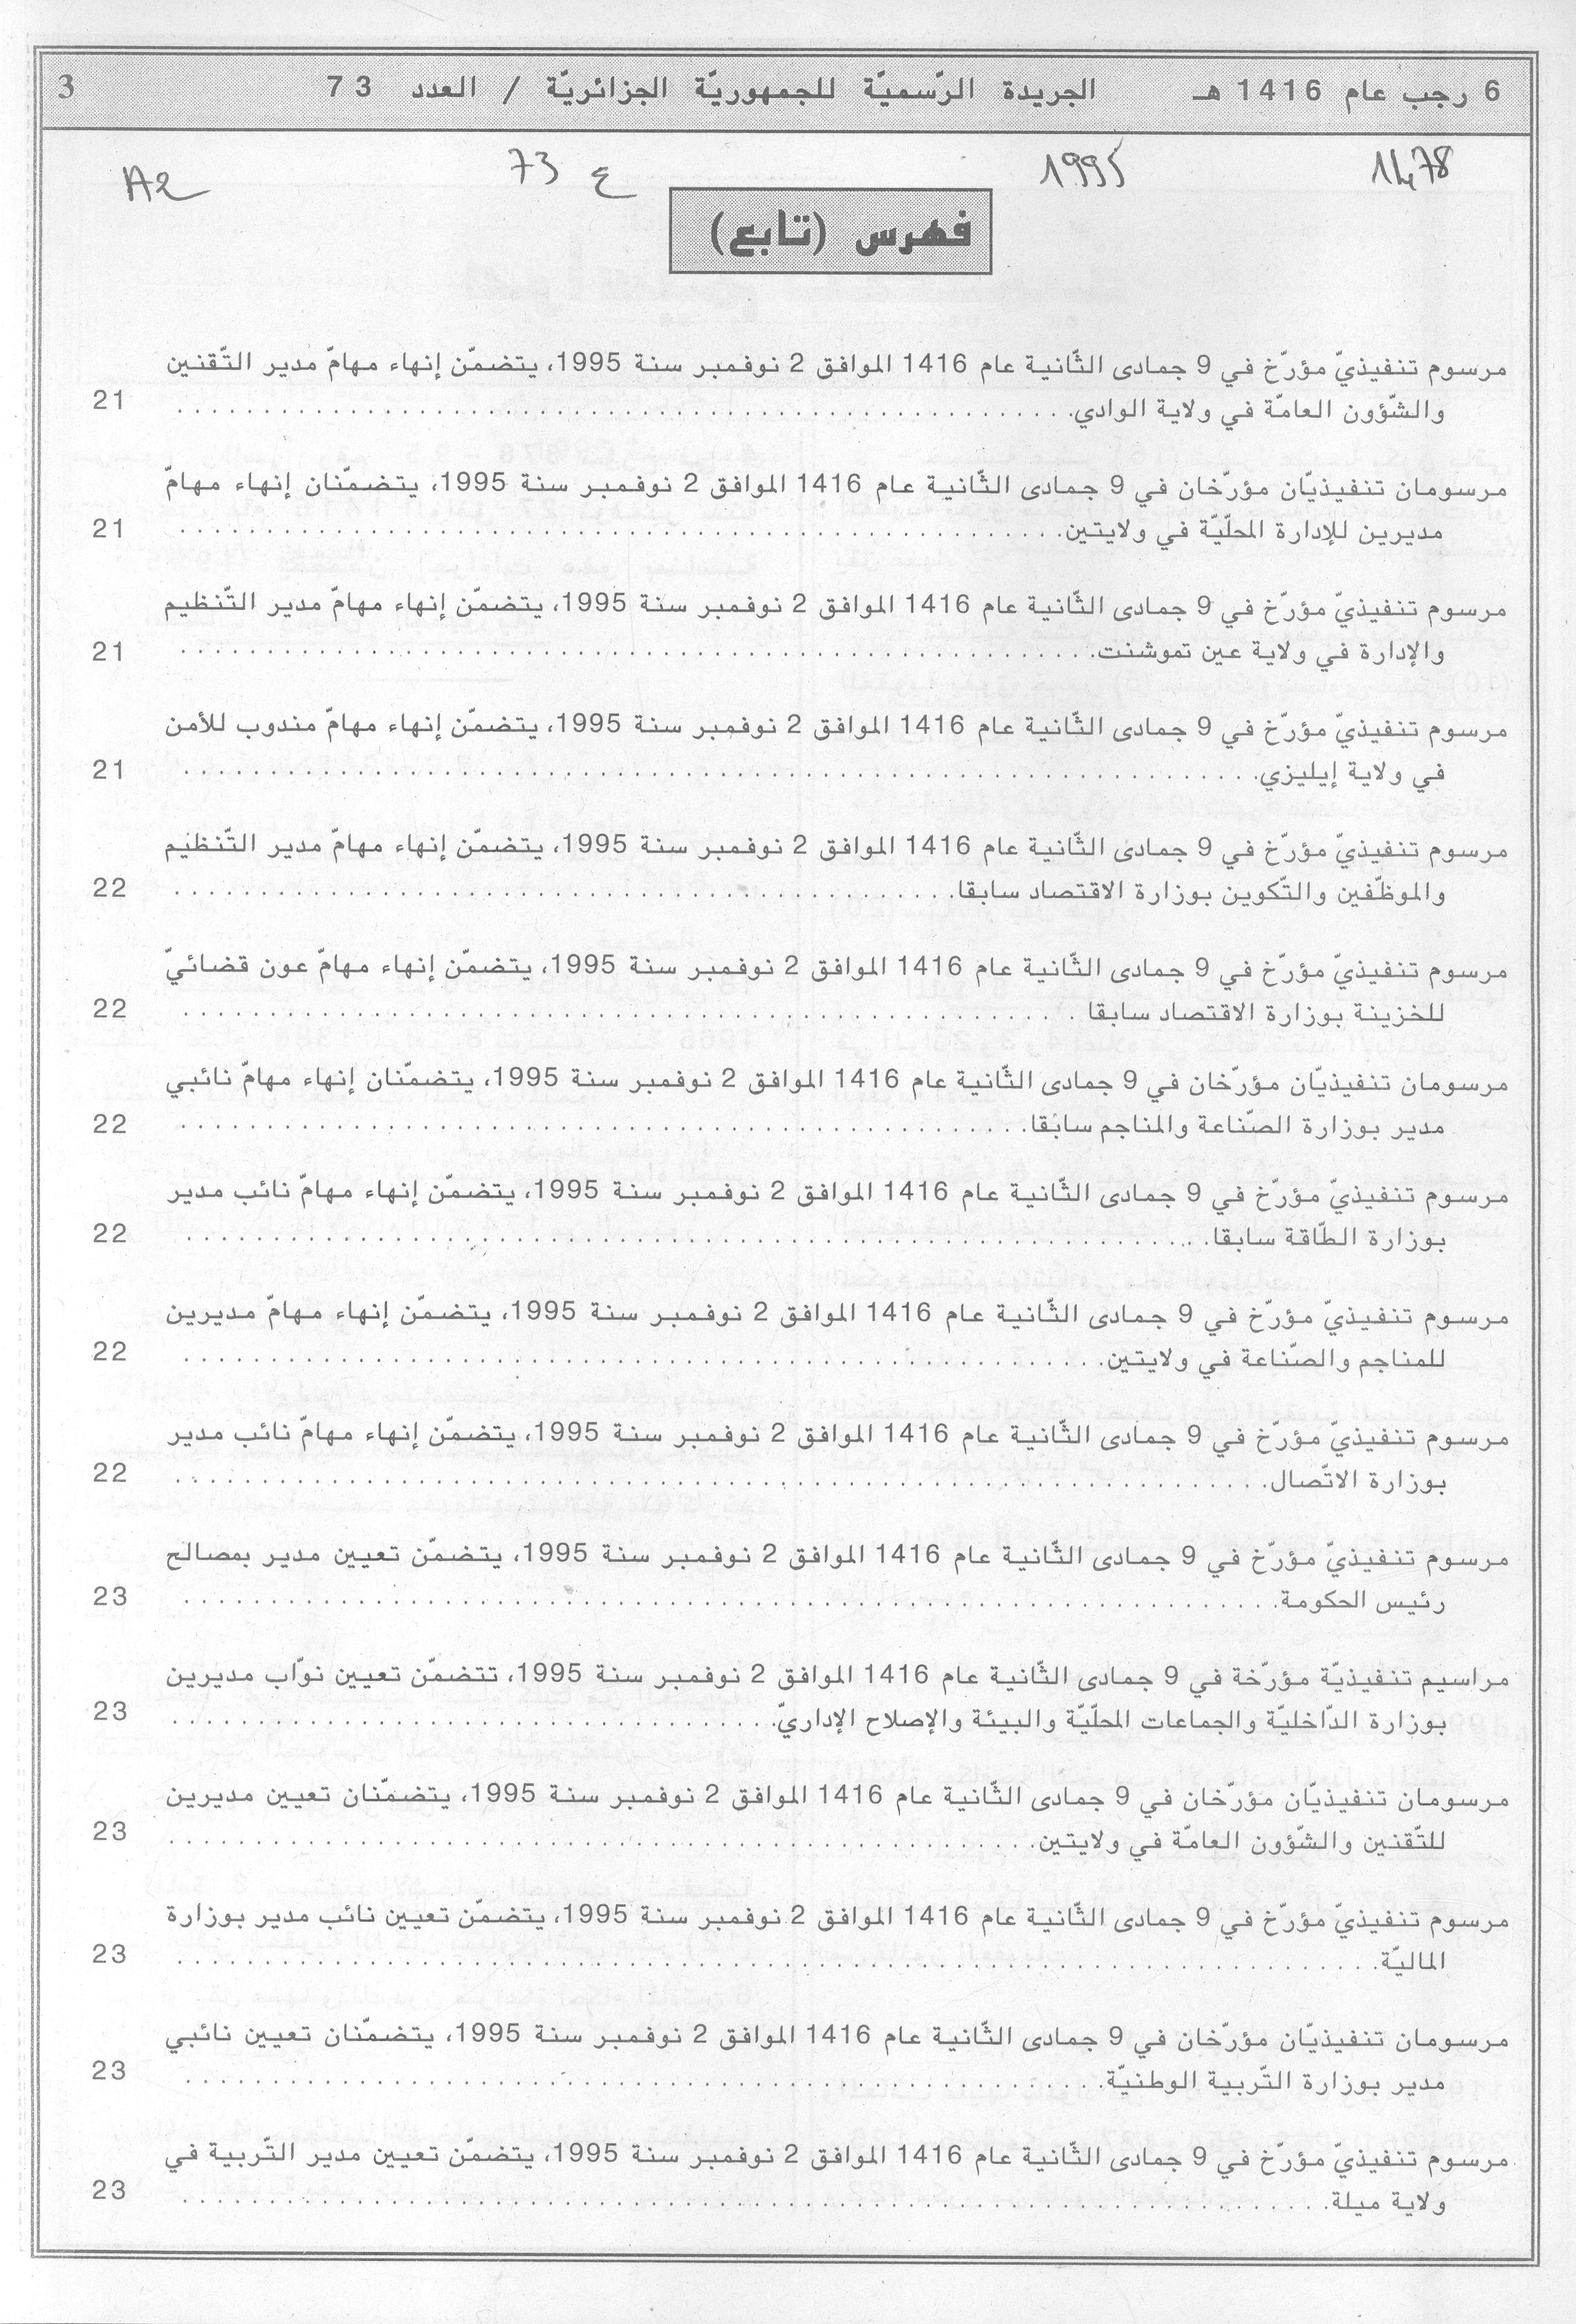 6 رجب عام 1416 هـ الجريدة الرّسميّة للجمهوريّة الجزائريّة / العدد 73 3
1478 1995 ع 73 A2
فهرس (تابع)
مرسوم تنفيذيّ مؤرّخ في 9 جمادى الثّانية عام 1416 الموافق 2 نوفمبر سنة 1995، يتضمّن إنهاء مهامّ مدير التّقنين
والشّؤون العامّة في ولاية الوادي. 21
مرسومان تنفيذيّان مؤرّخان في 9 جمادى الثّانية عام 1416 الموافق 2 نوفمبر سنة 1995، يتضمّنان إنهاء مهامّ
مديرين للإدارة المحلّيّة في ولايتين. 21
مرسوم تنفيذيّ مؤرّخ في 9 جمادى الثّانية عام 1416 الموافق 2 نوفمبر سنة 1995، يتضمّن إنهاء مهامّ مدير التّنظيم
والإدارة في ولاية عين تموشنت. 21
مرسوم تنفيذيّ مؤرّخ في 9 جمادى الثّانية عام 1416 الموافق 2 نوفمبر سنة 1995، يتضمّن إنهاء مهامّ مندوب للأمن
في ولاية إيليزي. 21
مرسوم تنفيذيّ مؤرّخ في 9 جمادى الثّانية عام 1416 الموافق 2 نوفمبر سنة 1995، يتضمّن إنهاء مهامّ مدير التّنظيم
والموظّفين والتّكوين بوزارة الاقتصاد سابقا. 22
مرسوم تنفيذيّ مؤرّخ في 9 جمادى الثّانية عام 1416 الموافق 2 نوفمبر سنة 1995، يتضمّن إنهاء مهامّ عون قضائيّ
للخزينة بوزارة الاقتصاد سابقا . 22
مرسومان تنفيذيّان مؤرّخان في 9 جمادى الثّانية عام 1416 الموافق 2 نوفمبر سنة 1995، يتضمّنان إنهاء مهامّ نائبي
مدير بوزارة الصّناعة والمناجم سابقا. 22
مرسوم تنفيذيّ مؤرّخ في 9 جمادى الثّانية عام 1416 الموافق 2 نوفمبر سنة 1995، يتضمّن إنهاء مهامّ نائب مدير
بوزارة الطّاقة سابقا. 22
مرسوم تنفيذيّ مؤرّخ في 9 جمادى الثّانية عام 1416 الموافق 2 نوفمبر سنة 1995، يتضمّن إنهاء مهامّ مديرين
للمناجم والصّناعة في ولايتين. 22
مرسوم تنفيذيّ مؤرّخ في 9 جمادى الثّانية عام 1416 الموافق 2 نوفمبر سنة 1995، يتضمّن إنهاء مهامّ نائب مدير
بوزارة الاتّصال. 22
مرسوم تنفيذيّ مؤرّخ في 9 جمادى الثّانية عام 1416 الموافق 2 نوفمبر سنة 1995، يتضمّن تعيين مدير بمصالح
رئيس الحكومة. 23
مراسيم تنفيذيّة مؤرّخة في 9 جمادى الثّانية عام 1416 الموافق 2 نوفمبر سنة 1995، تتضمّن تعيين نوّاب مديرين
بوزارة الدّاخليّة والجماعات المحلّيّة والبيئة والإصلاح الإداريّ. 23
مرسومان تنفيذيّان مؤرّخان في 9 جمادى الثّانية عام 1416 الموافق 2 نوفمبر سنة 1995، يتضمّنان تعيين مديرين
للتّقنين والشّؤون العامّة في ولايتين. 23
مرسوم تنفيذيّ مؤرّخ في 9 جمادى الثّانية عام 1416 الموافق 2 نوفمبر سنة 1995، يتضمّن تعيين نائب مدير بوزارة
الماليّة. 23
مرسومان تنفيذيّان مؤرّخان في 9 جمادى الثّانية عام 1416 الموافق 2 نوفمبر سنة 1995، يتضمّنان تعيين نائبي
مدير بوزارة التّربية الوطنيّة. 23
مرسوم تنفيذيّ مؤرّخ في 9 جمادى الثّانية عام 1416 الموافق 2 نوفمبر سنة 1995، يتضمّن تعيين مدير التّربية في
ولاية ميلة. 23